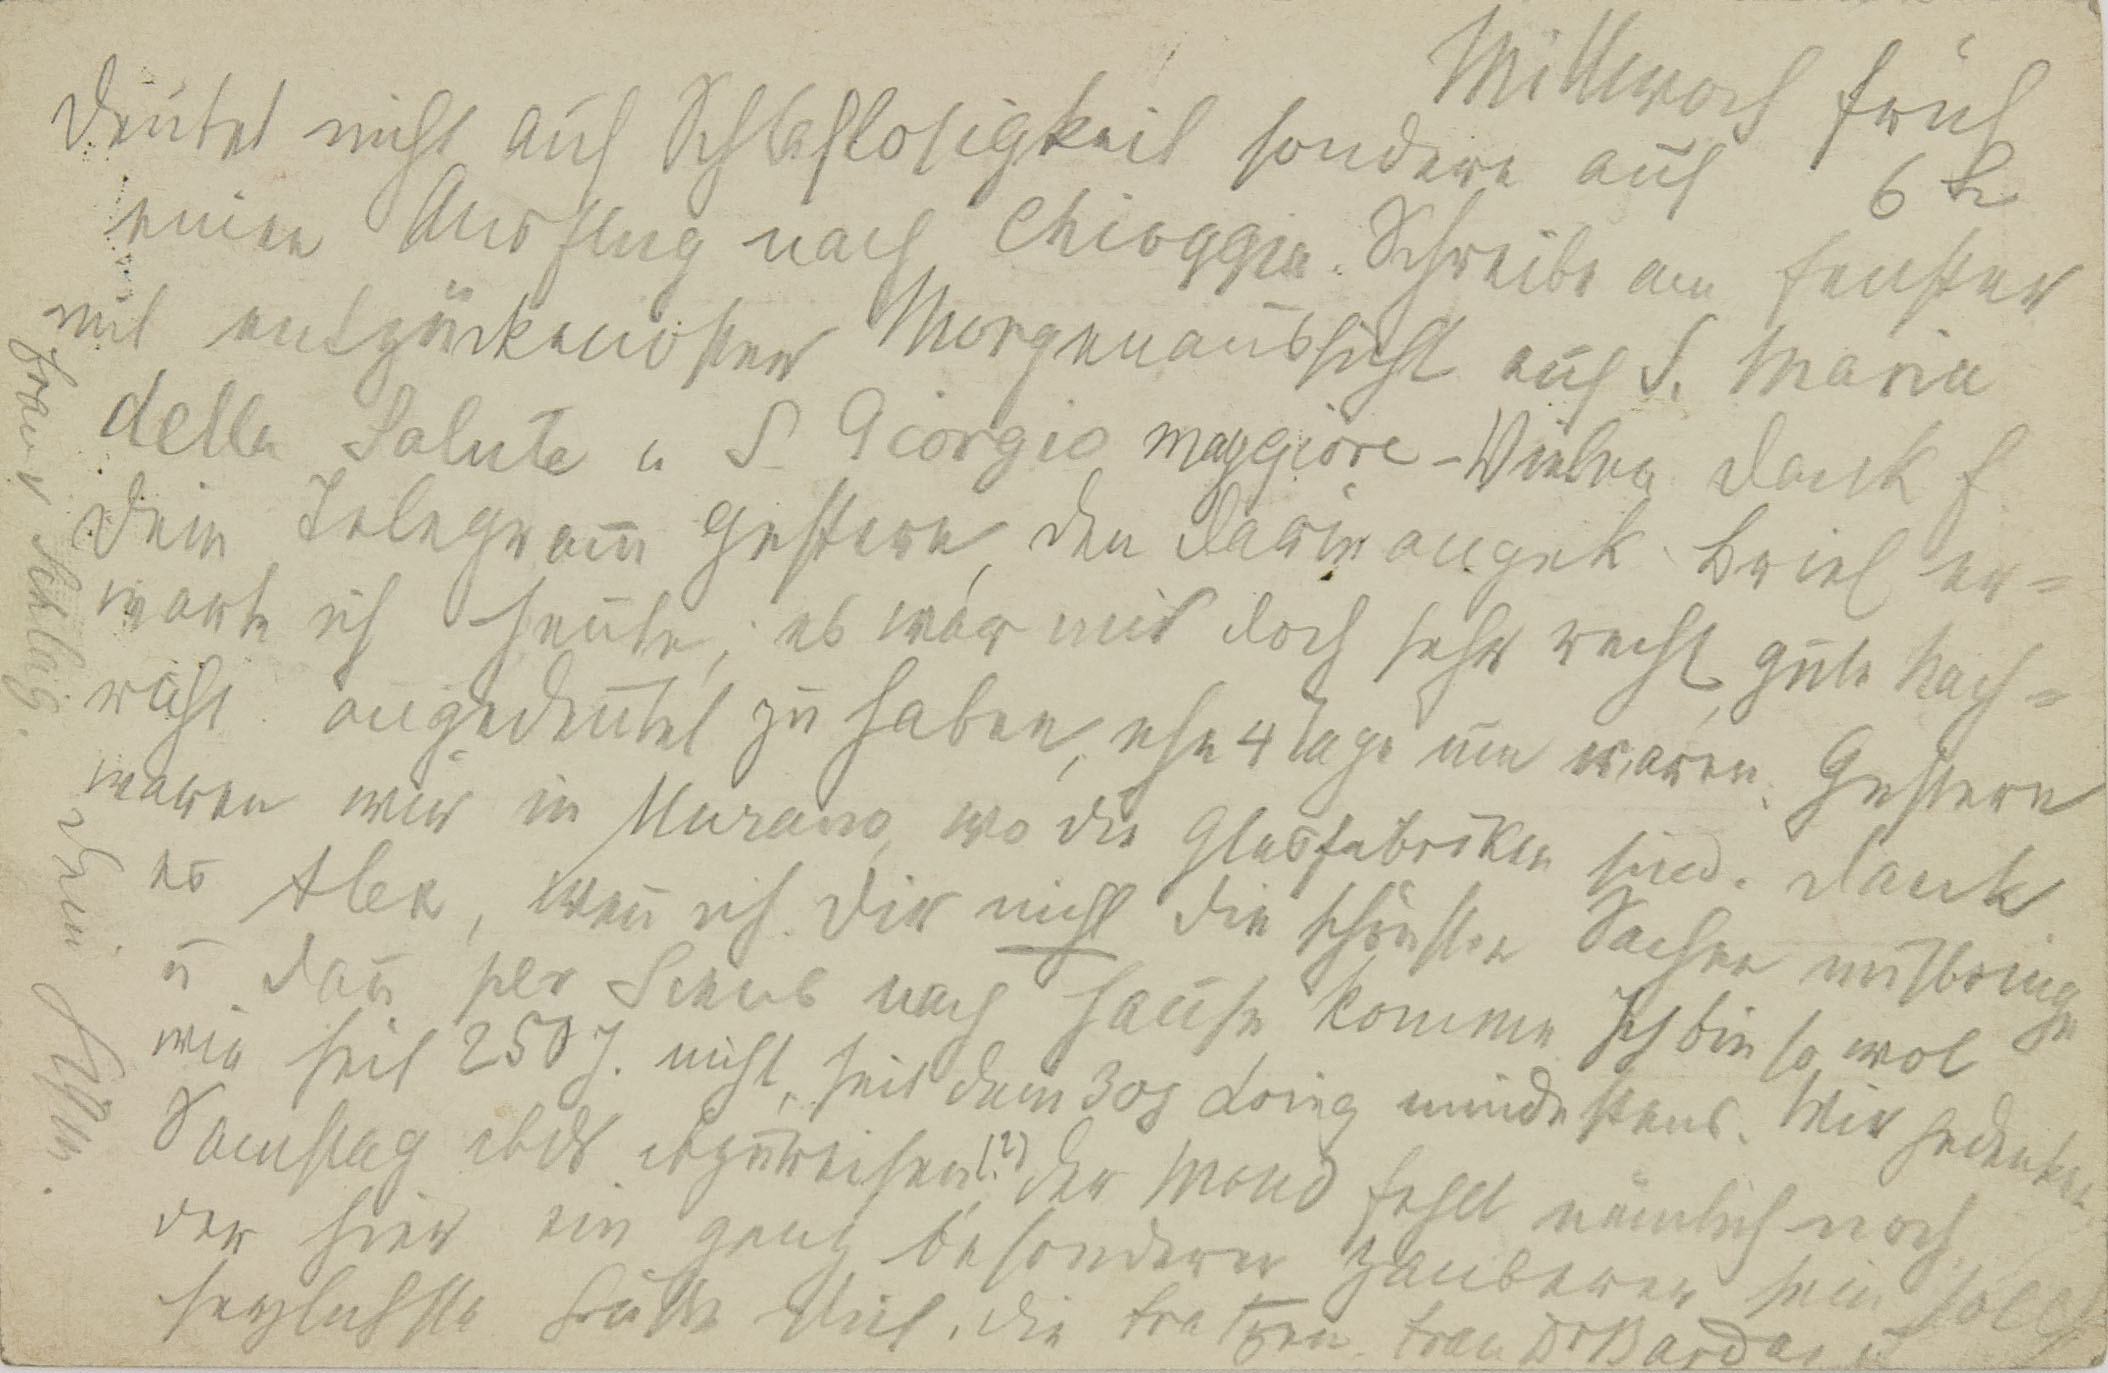 Mittwoch früh
6 h
deutet nicht auf Schlaflosigkeit sondern auf
einen Ausflug nach Chioggia. Schreibe am Fenster
mit entzückendster Morgenaussicht auf S. Maria
della Salute u S Giorgio maggiore – Vielen Dank f
Dein Telegram̅ gestern, den darin angek Brief er=
warte ich heute, es wär mir doch sehr recht, gute Nach=
richt angedeutet zu haben, ehe 4 Tage um waren. Gestern
waren wir in Murano, wo die Glasfabriken sind. Dank
es Alex, wen̅ ich Dir nicht die schönsten Sachen mitbringe
u dan̅ per Schub nach Hause komme Ich bin so wol
wie seit 250 J. nicht, seit dem 30j Krieg mindestens. Wir gedenken
Samstag abds abzureisen (?) der Mond fehlt nämlich noch
der hier ein ganz besonderer Zauberer sein soll.
herzlichste Grüße Dich, die Fratzen Frau Dr Bardas u
Frau Schlag.
Dein